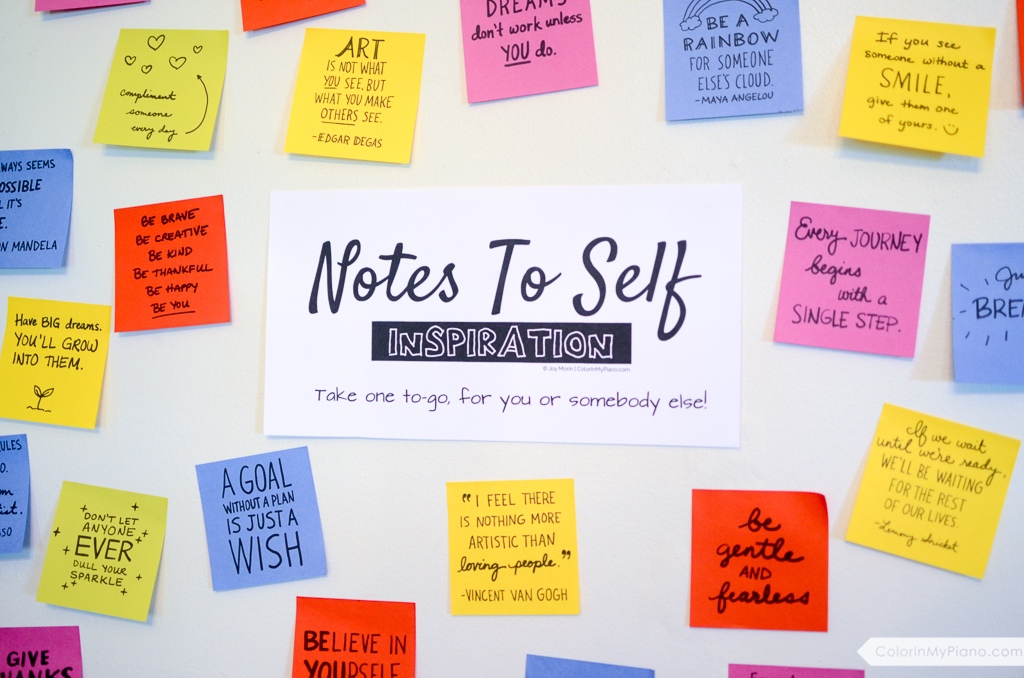 DREAMS
don't work unless
YOU do.
BE A
RAINBOW
FOR SOMEONE
ELSE'S CLOUD.
-MAYA ANGELOU
compliment
someone
every day
ART
IS NOT WHAT
YOU SEE, BUT
WHAT YOU MAKE
OTHERS SEE.
-EDGAR DEGAS
If you see
someone without a
SMILE,
give them one
of yours.
SEEMS
IT'S
MANDELA
BE BRAVE
BE CREATIVE
BE KIND
BE THANKFUL
BE HAPPY
BE YOU
Notes To Self
INSPIRATION
© Joy Morin | ColorInMyPiano.com
Take one to-go, for you or somebody else!
Every JOURNEY
begins
with a
SINGLE STEP.
Have BIG dreams.
YOU'LL GROW
INTO THEM.
If we wait
until we're ready,
WE'LL BE WAITING
FOR THE REST
OF OUR LIVES.
-Lemony Snicket
DON'T LET
ANYONE
EVER
DULL YOUR
SPARKLE
A GOAL
WITHOUT A PLAN
IS JUST A
WISH
"I FEEL THERE
IS NOTHING MORE
ARTISTIC THAN
loving people."
-VINCENT VAN GOGH
be
gentle
AND
fearless
GIVE
BELIEVE IN
YOURSELF
ColorInMyPiano.com